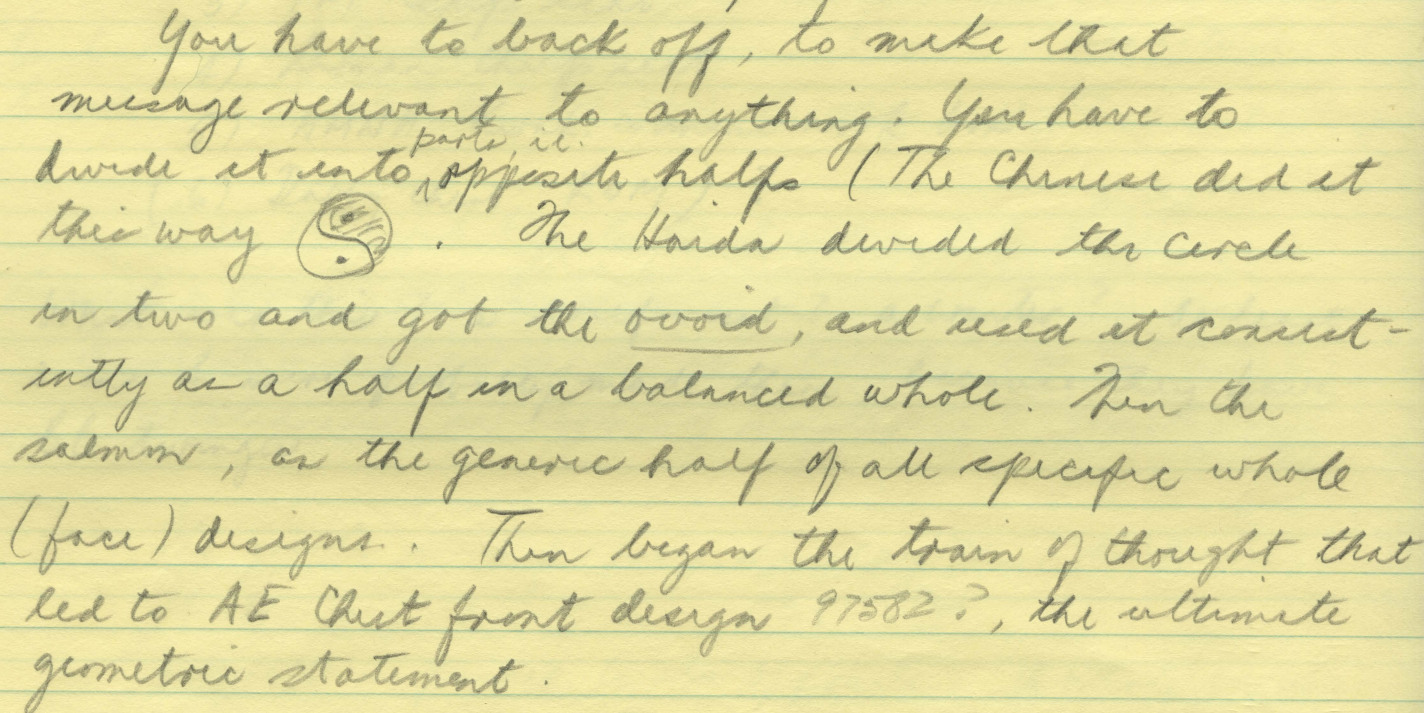 You have to back off, to make that
message relevant to anything. You have to
parts, ie.
divide it into opposite halfs (The Chinese did it
this way . The Haida divided the circle
in two and got the ovoid, and used it consist-
ently as a half in a balanced whole. Then the
salmon, as the generic half of all specific whole
(face) designs. Then began the train of thought that
led to AE Chest front design 97582?, the ultimate
geometric statement.